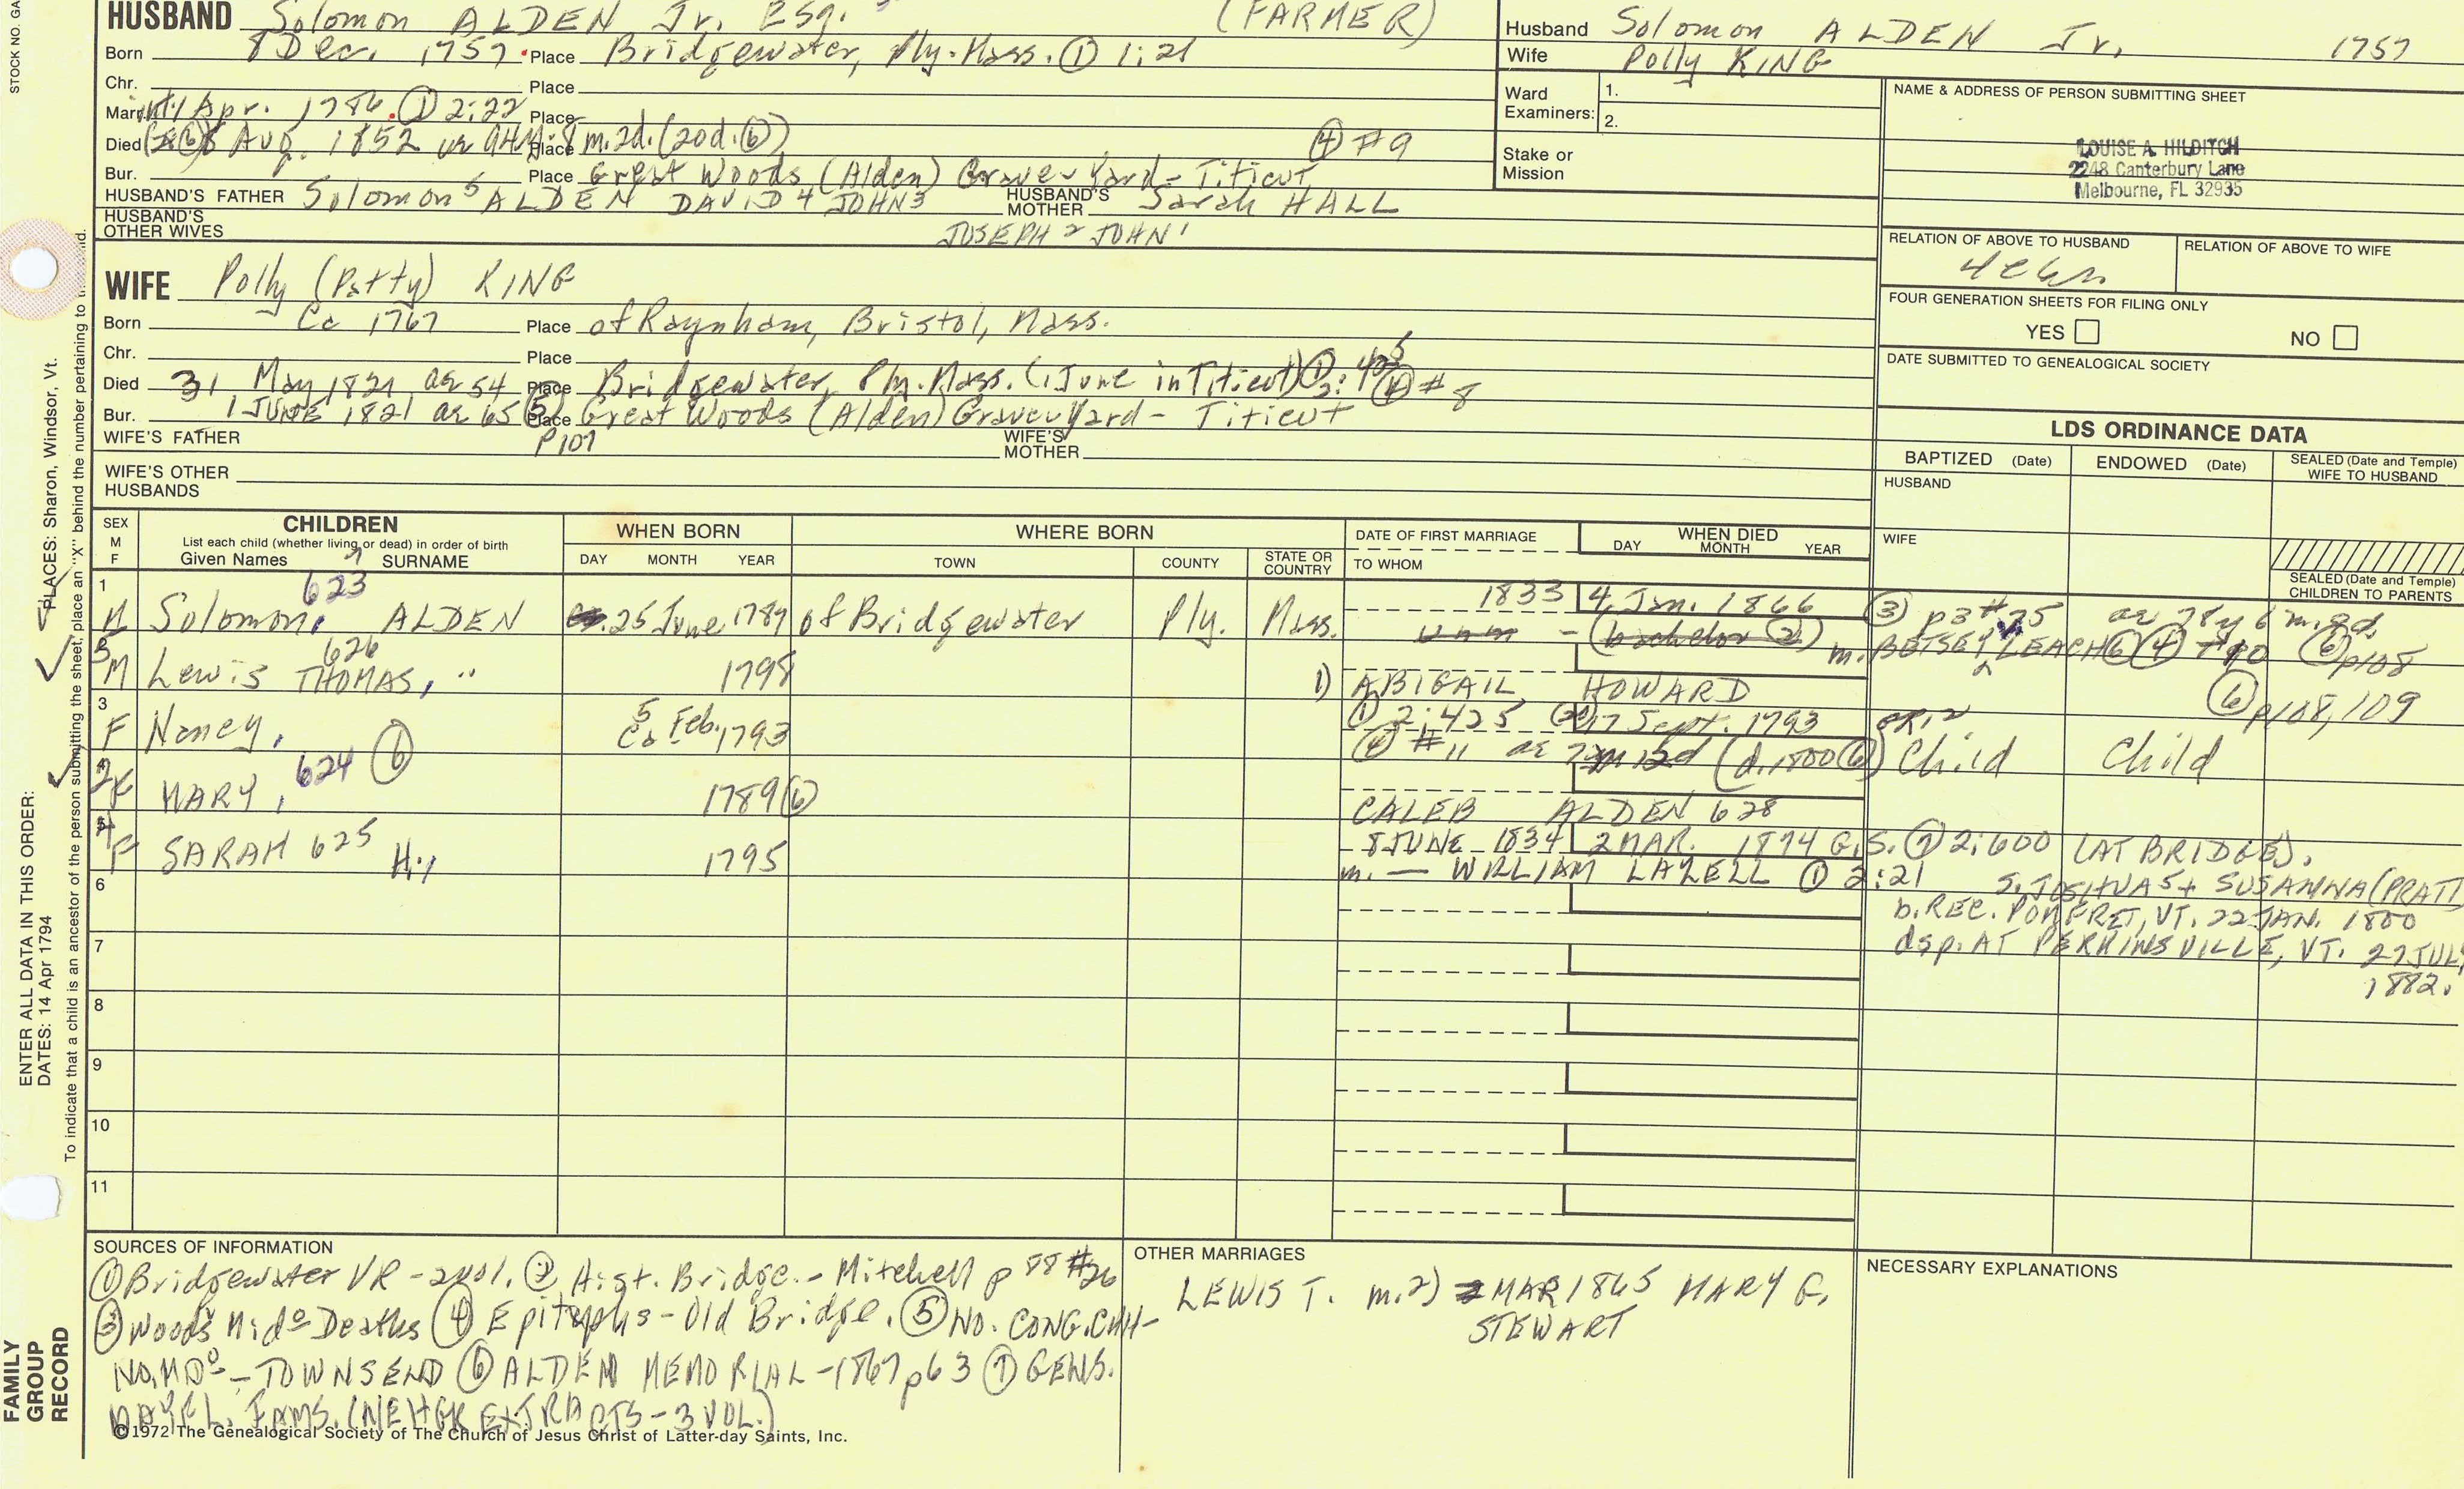 STOCK NO. GA
HUSBAND Solomon ALDEN Jr. Esq. (FARMER)
Born 8 Dec. 1757 Place Bridgewater, Ply. Mass. ① 1:21
Chr. Place
Marr. int. 1 Apr. 1786. ① 2:22 Place
Died Aug. 1852 Place 8 m. 2d. (20d. ⑥) ④ #9
Bur. Place Great Woods (Alden) Grave Yard - Titicut
HUSBAND'S FATHER Solomon 5 ALDEN DAVID 4 JOHN 3 HUSBAND'S MOTHER Sarah HALL
HUSBAND'S OTHER WIVES JOSEPH 2 JOHN 1
WIFE Polly (Patty) KING
Born Ca 1767 Place of Raynham, Bristol, Mass.
Chr. Place
Died 31 May 1821 ae 54 Place Bridgewater, Ply. Mass. (1 June in Titicut) ① 2: ④ #8
Bur. 1 JUNE 1821 ae 65 ⑤ Place Great Woods (Alden) Grave Yard - Titicut
P107
WIFE'S FATHER WIFE'S MOTHER
WIFE'S OTHER HUSBANDS
Husband Solomon ALDEN Jr. 1757
Wife Polly KING
Ward Examiners: 1.
2.
Stake or Mission
NAME & ADDRESS OF PERSON SUBMITTING SHEET
LOUISE A. HILDITCH
2248 Canterbury Lane
Melbourne, FL 32935
RELATION OF ABOVE TO HUSBAND RELATION OF ABOVE TO WIFE
FOUR GENERATION SHEETS FOR FILING ONLY
YES NO
DATE SUBMITTED TO GENEALOGICAL SOCIETY
LDS ORDINANCE DATA
BAPTIZED (Date) ENDOWED (Date) SEALED (Date and Temple) WIFE TO HUSBAND
HUSBAND
WIFE
SEALED (Date and Temple) CHILDREN TO PARENTS
SEX M F
CHILDREN
List each child (whether living or dead) in order of birth
Given Names SURNAME
WHEN BORN
DAY MONTH YEAR
WHERE BORN
TOWN COUNTY STATE OR COUNTRY
DATE OF FIRST MARRIAGE
TO WHOM
WHEN DIED
DAY MONTH YEAR
1 623
M Solomon, ALDEN 25 June 1787 of Bridgewater Ply. Mass. 1833 4 Jan. 1866 ③ p3 #25 ae 78y 6m. 9d.
unm - (bachelor ②) m. BETSEY LEACH ⑥ ④ ⑥ p108
626
M Lewis THOMAS, " 1798 1) ABIGAIL HOWARD ⑥ p108, 109
3
F Nancy, Ca 5 Feb. 1793 ① 2:425 17 Sept. 1793
④ #11 (d. 1800 ⑥) Child Child
624 ⑥
2 F MARY, 1789 ⑥ CALEB ALDEN 628
4 F SARAH 625 H. 1795 8 JUNE 1834 2 MAR. 1874 G.S. ⑦ 2:600 (AT BRIDGE).
m. — WILLIAM LAZELL ① 2:21
S. JOSHUA 5 + SUSANNA (PRATT)
b. REC. POMFRET, VT. 22 JAN. 1800
dsp. AT PERKINSVILLE, VT. 27 JUL
1882.
6
7
8
9
10
11
SOURCES OF INFORMATION
① Bridgewater VR - 2 vol. ② Hist. Bridge. - Mitchell p 88 #26
③ Woods Mid° Deaths ④ Epitaphs - Old Bridge. ⑤ NO. CONG. CHH -
NO. MD° - TOWNSEND ⑥ ALDEN MEMORIAL - 1867 p63 ⑦ GENS.
MAYFL. FAMS. (NEHGR EXTRACTS - 3 VOL.)
OTHER MARRIAGES
LEWIS T. m. 2) MAR 1865 MARY G.
STEWART
NECESSARY EXPLANATIONS
©1972 The Genealogical Society of The Church of Jesus Christ of Latter-day Saints, Inc.
FAMILY GROUP RECORD
ENTER ALL DATA IN THIS ORDER:
DATES: 14 Apr 1794
PLACES: Sharon, Windsor, Vt.
To indicate that a child is an ancestor of the person submitting the sheet, place an "X" behind the number pertaining to